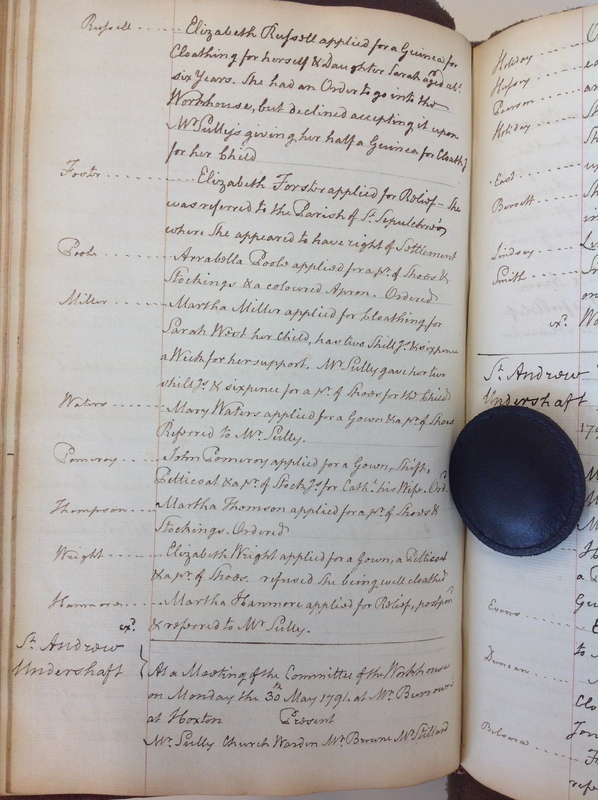 Russell ...... Elizabeth Russell applied for a Guinea for
Cloathing for herself & Daughter Sarah aged abt.
six Years. She had an Order to go into the
Workhouse, but declined accepting it upon
Mr Sully's giving her half a Guinea for Cloathg
for her Child
Foster ............ Elizabeth Forster applied for Relief - She
was referred to the Parish of St. Sepulchre's
where She appeared to have right of Settlement
Poole ........ Arrabella Poole applied for a pr. of Shoes &
Stockings & a coloured Apron. Ordered
Miller ........ Martha Miller applied for Cloathing for
Sarah West her Child, has two Shillgs. & sixpence
a Week for her support. Mr Sully gave her two
shillgs & sixpence for a pr. of Shoes for the Child
Waters ....... Mary Waters applied for a Gown & a pr. of Shoes
Referred to Mr Sully.
Pomeroy ..... John Pomeroy applied for a Gown, Shift,
Petticoat & a pr. of Stockgs. for Cath: his Wife. Ord.
Thompson ..... Martha Thomson applied for a pr. of Shoes &
Stockings. Ordered
Wright ....... Elizabeth Wright applied for a Gown, a Petticoat
& a pr. of Shoes. refused She being well cloathed
Hanmore ..... Martha Hanmore applied for Relief, postpon
& referred to Mr Sully.
exd.
St. Andrew
Undershaft
At a Meeting of the Committee of the Workhouse
on Monday the 30th May 1791. at Mr Burrows's
at Hoxton Present
Mr Sully Church Warden Mr Browne Mr Stillard
Holiday
Hussey
Pearson
Holiday
East
Burott
Lindsey
Smith
exd. Wo
St. Andrew
Undershaft
179
Evans
Duncan